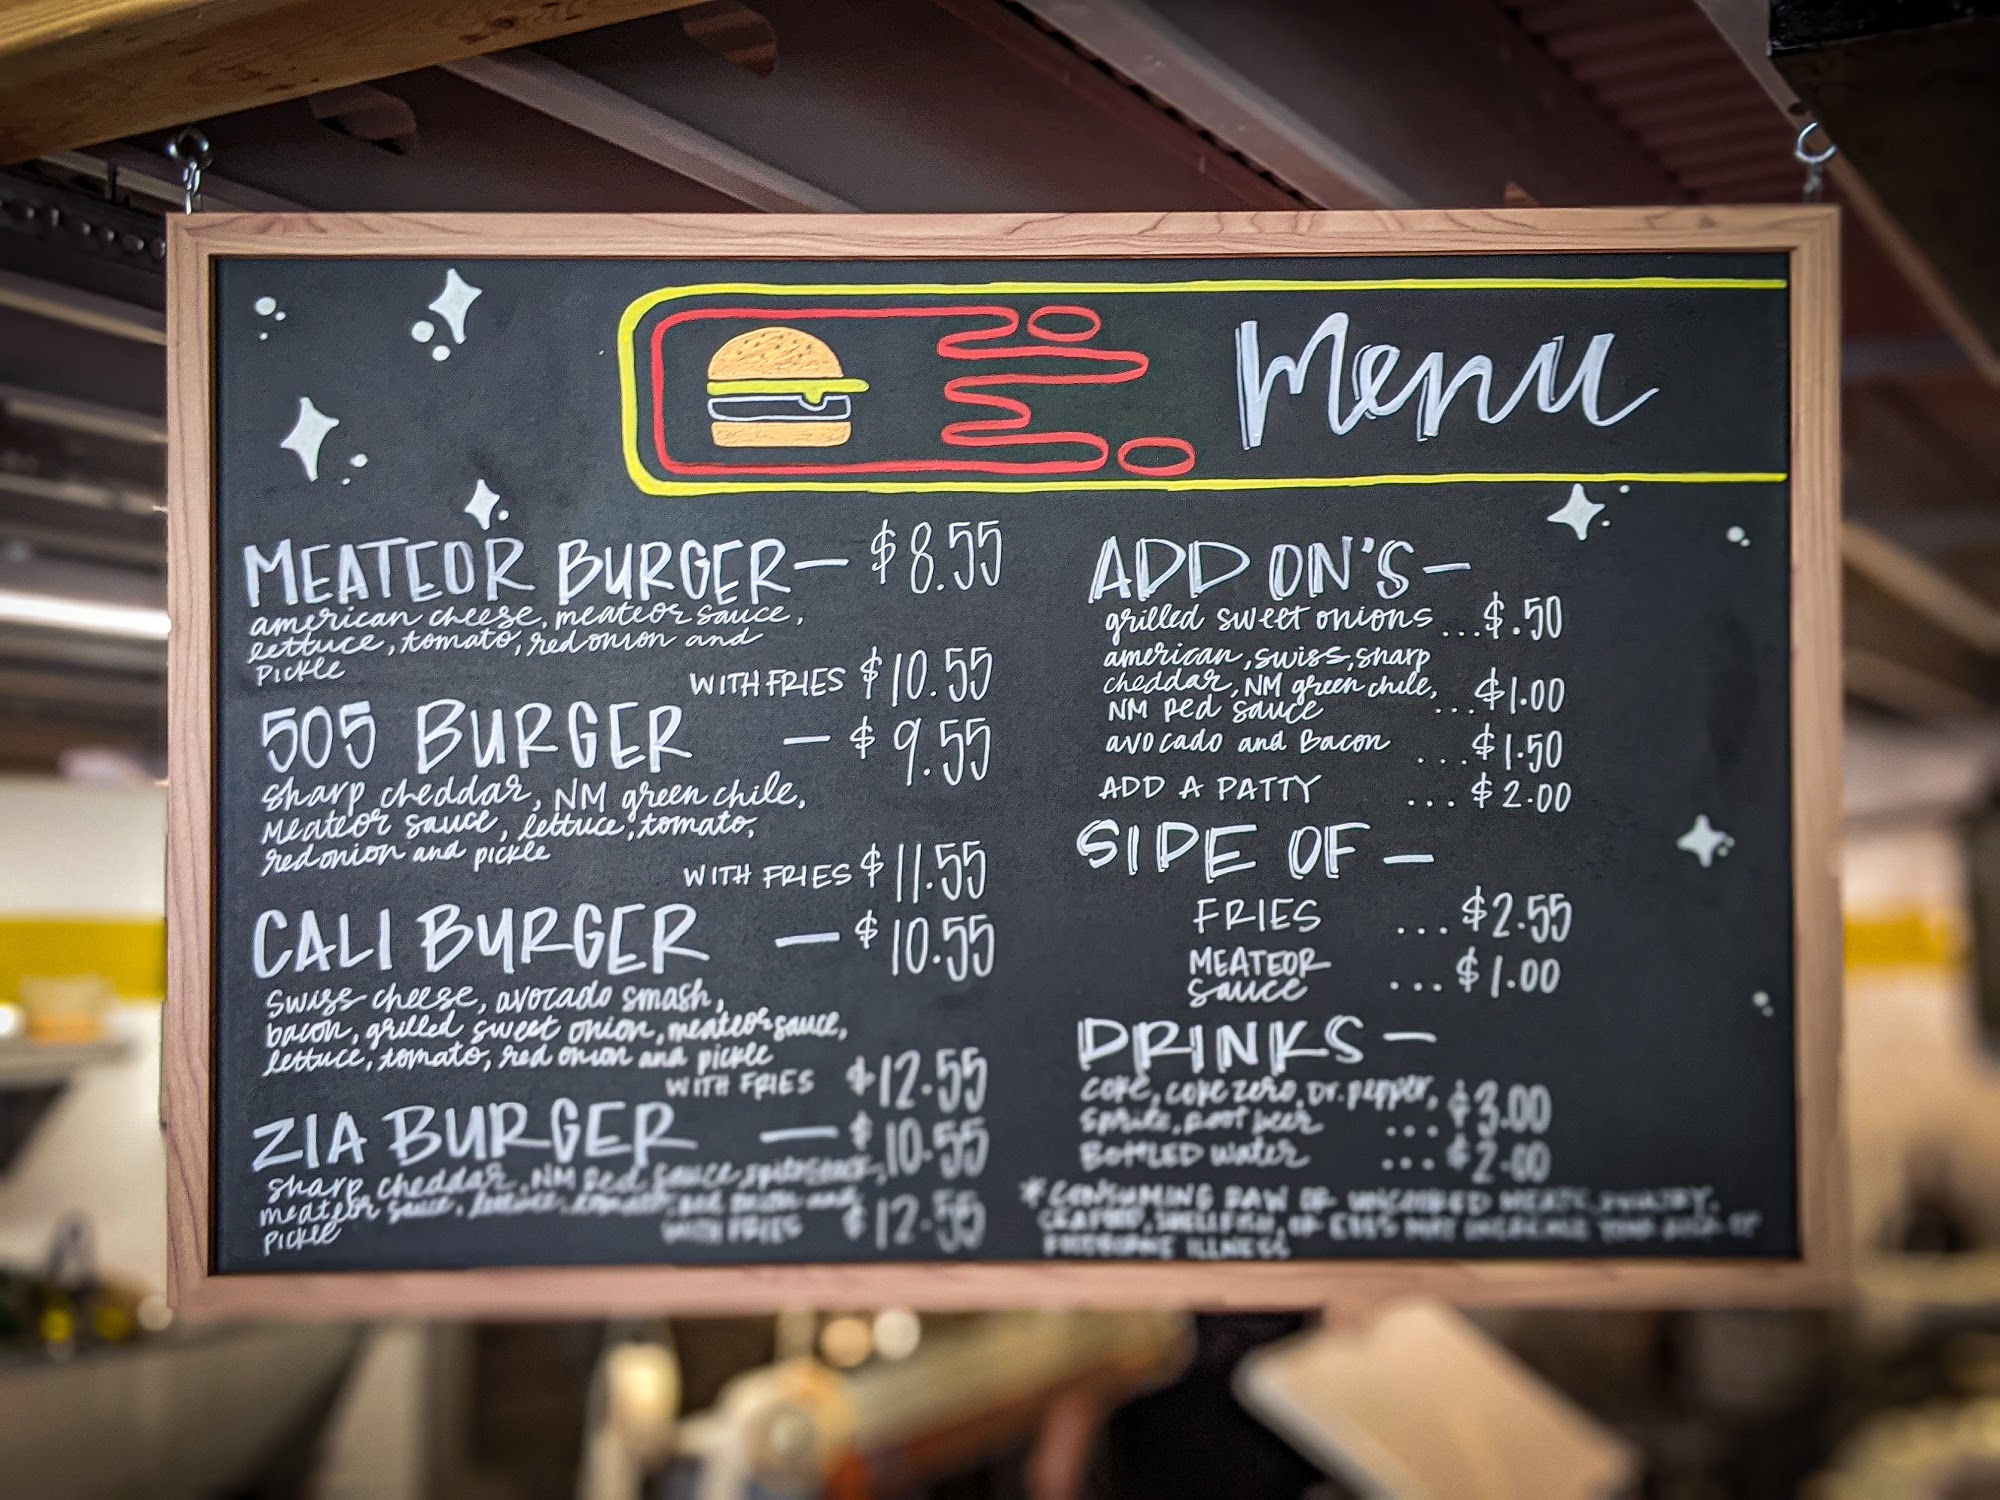 Menu
MEATEOR BURGER — $8.55
american cheese, meateor sauce,
lettuce, tomato, red onion and
pickle
WITH FRIES $10.55
505 BURGER — $9.55
sharp cheddar, NM green chile,
Meateor sauce, lettuce, tomato,
red onion and pickle
WITH FRIES $11.55
CALI BURGER — $10.55
swiss cheese, avocado smash,
bacon, grilled sweet onion, meateor sauce,
lettuce, tomato, red onion and pickle
WITH FRIES $12.55
ZIA BURGER — $10.55
sharp cheddar, NM Red sauce,
meateor sauce, lettuce, tomato, red onion and
pickle
WITH FRIES $12.55
ADD ON'S —
grilled sweet onions ...$.50
american, swiss, sharp
cheddar, NM green chile,
NM Red sauce ...$1.00
avocado and Bacon ...$1.50
ADD A PATTY ...$2.00
SIDE OF —
FRIES ...$2.55
MEATEOR
sauce ...$1.00
DRINKS —
coke, coke zero, Dr. pepper,
sprite, root beer ...$3.00
BOTTLED water ...$2.00
*CONSUMING RAW OR UNCOOKED MEATS, POULTRY,
SEAFOOD, SHELLFISH, OR EGGS MAY INCREASE YOUR RISK OF
FOODBORNE ILLNESS